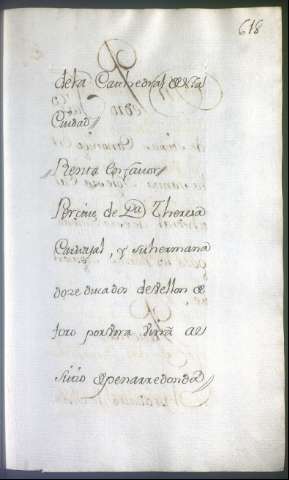 618
de la Cathedral de esta
Ciudad
Renta Con favor
Perçiue de Da. Theresa
Carvajal, y su hermana
doze ducados de Vellon de
foro por Una Viña al
sitio de penarredonda